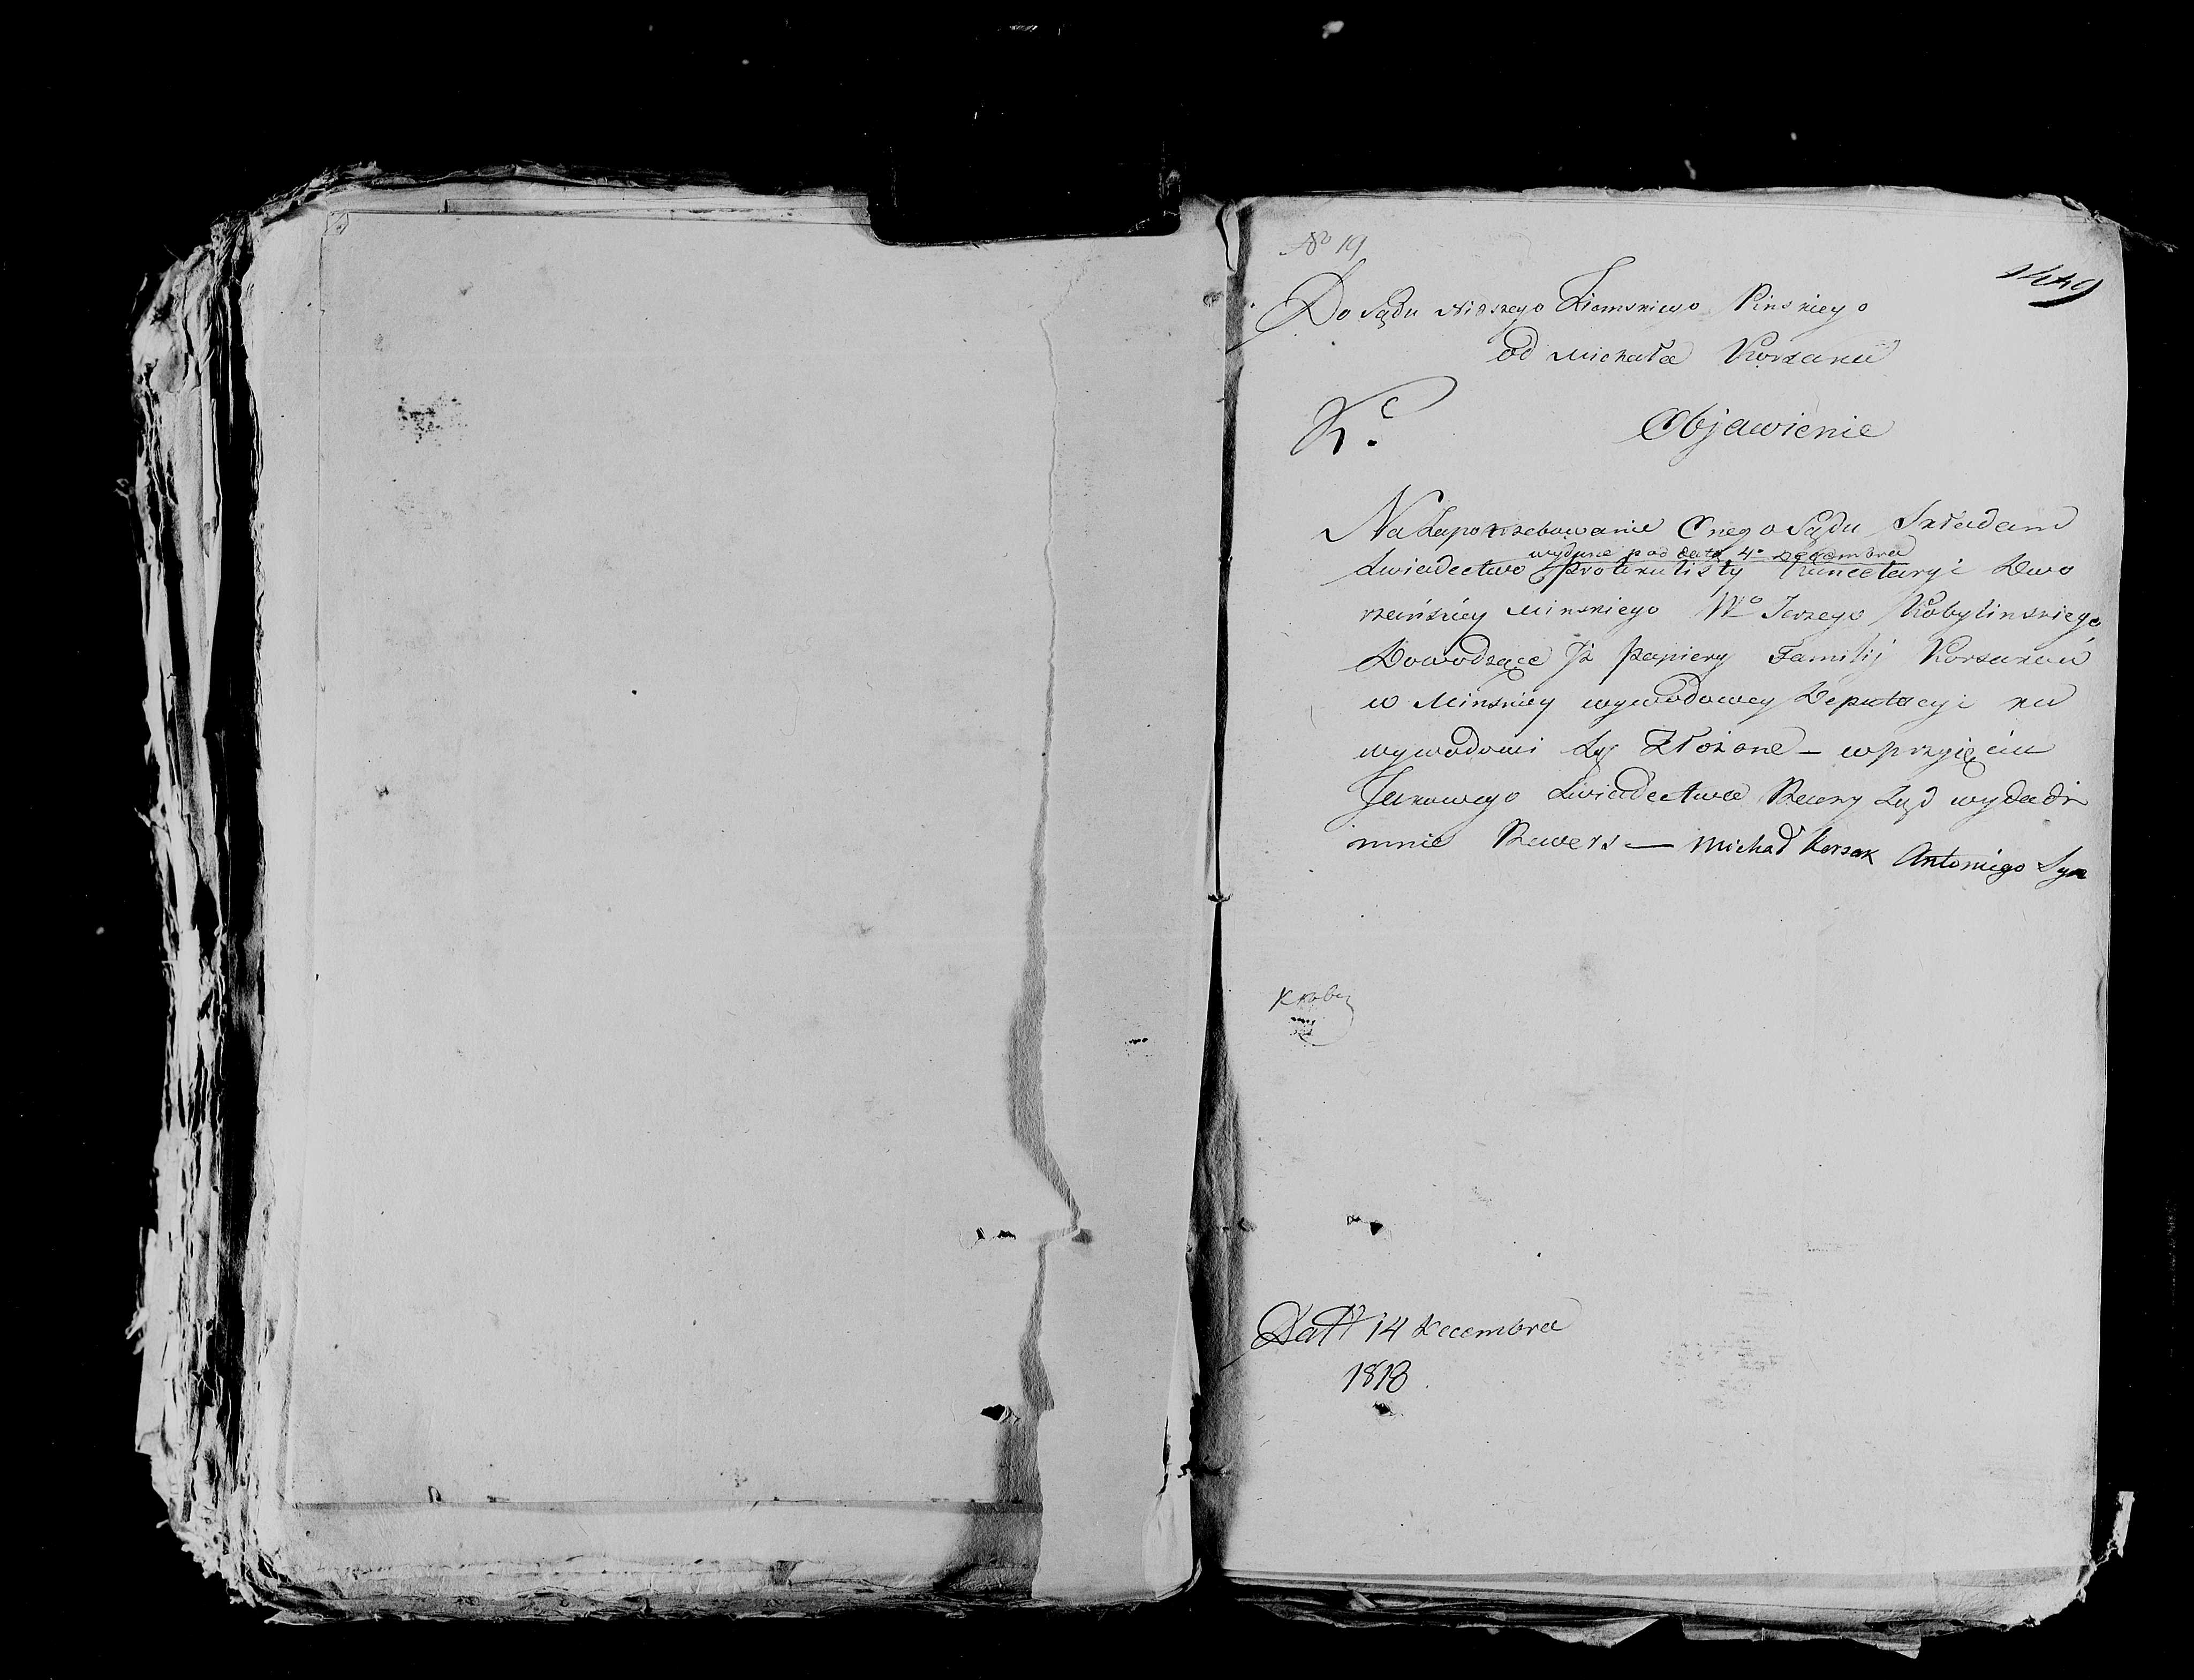 No 19
1449
Do Sądu Niższego Ziemskiego Pinskiego
od Michała Korsaka
Objawienie
Na Zapotrzebowanie Onego Sądu Składam
wydane pod datą 4o Decembra
Swiadectwo Protokulisty Kancelaryi Dwo
rzańskiey Minskiego Wo Jerzego Kobylinskiego
Dowodzące Jż Papiery Familij Korsaków
w Minskiey wywodowey Deputacyi na
wywodowi są Złożone – w przyięciu
Jakowego Swiadectwa Raczy Sąd wydadź
mnie Rewers — Michał Korsak Antoniego Syn
Datt 14 Decembra
1818